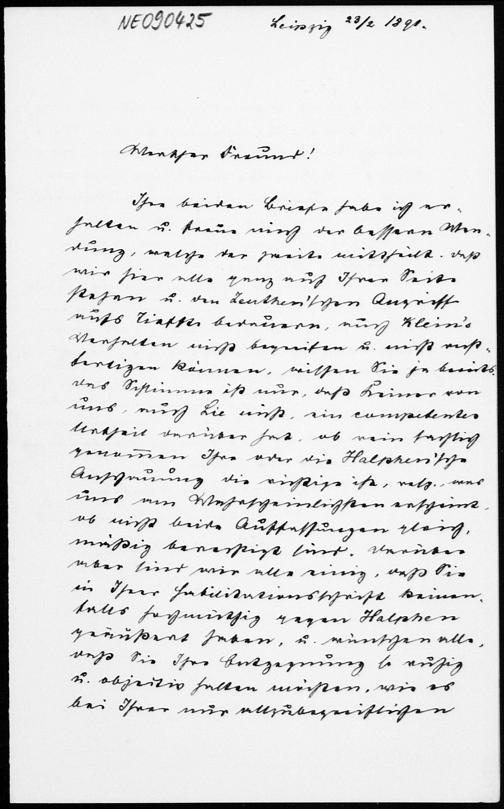 NE090425
Leipzig 23/2 1890.
Werther Freund!
Ihre beiden Briefe habe ich er-
halten u. freue mich der bessern Wen-
dung, welche der zweite mittheilt. daß
wir hier alle ganz auf Ihrer Seite
stehen u. den Zeuthen'schen Angriff
aufs Tiefste bedauern, auch Klein's
Verhalten nicht begreifen u. nicht recht-
fertigen können, wissen Sie ja bereits.
das Schlimme ist nur, daß Keiner von
uns, auch Lie nicht, ein competentes
Urtheil darüber hat, ob rein sachlich
genommen Ihre oder die Halphen'sche
Anschauung die richtige ist, resp., was
uns am Wahrscheinlichsten erscheint,
ob nicht beide Auffassungen gleich-
mäßig berechtigt sind. Darüber
aber sind wir alle einig, daß Sie
in Ihrer Habilitationsschrift keinen-
falls hochmüthig gegen Halphen
geäußert haben, u. wünschen alle,
daß Sie Ihre Entgegnung so ruhig
u. objectiv halten möchten, wie es
bei Ihrer nur allzubegreiflichen